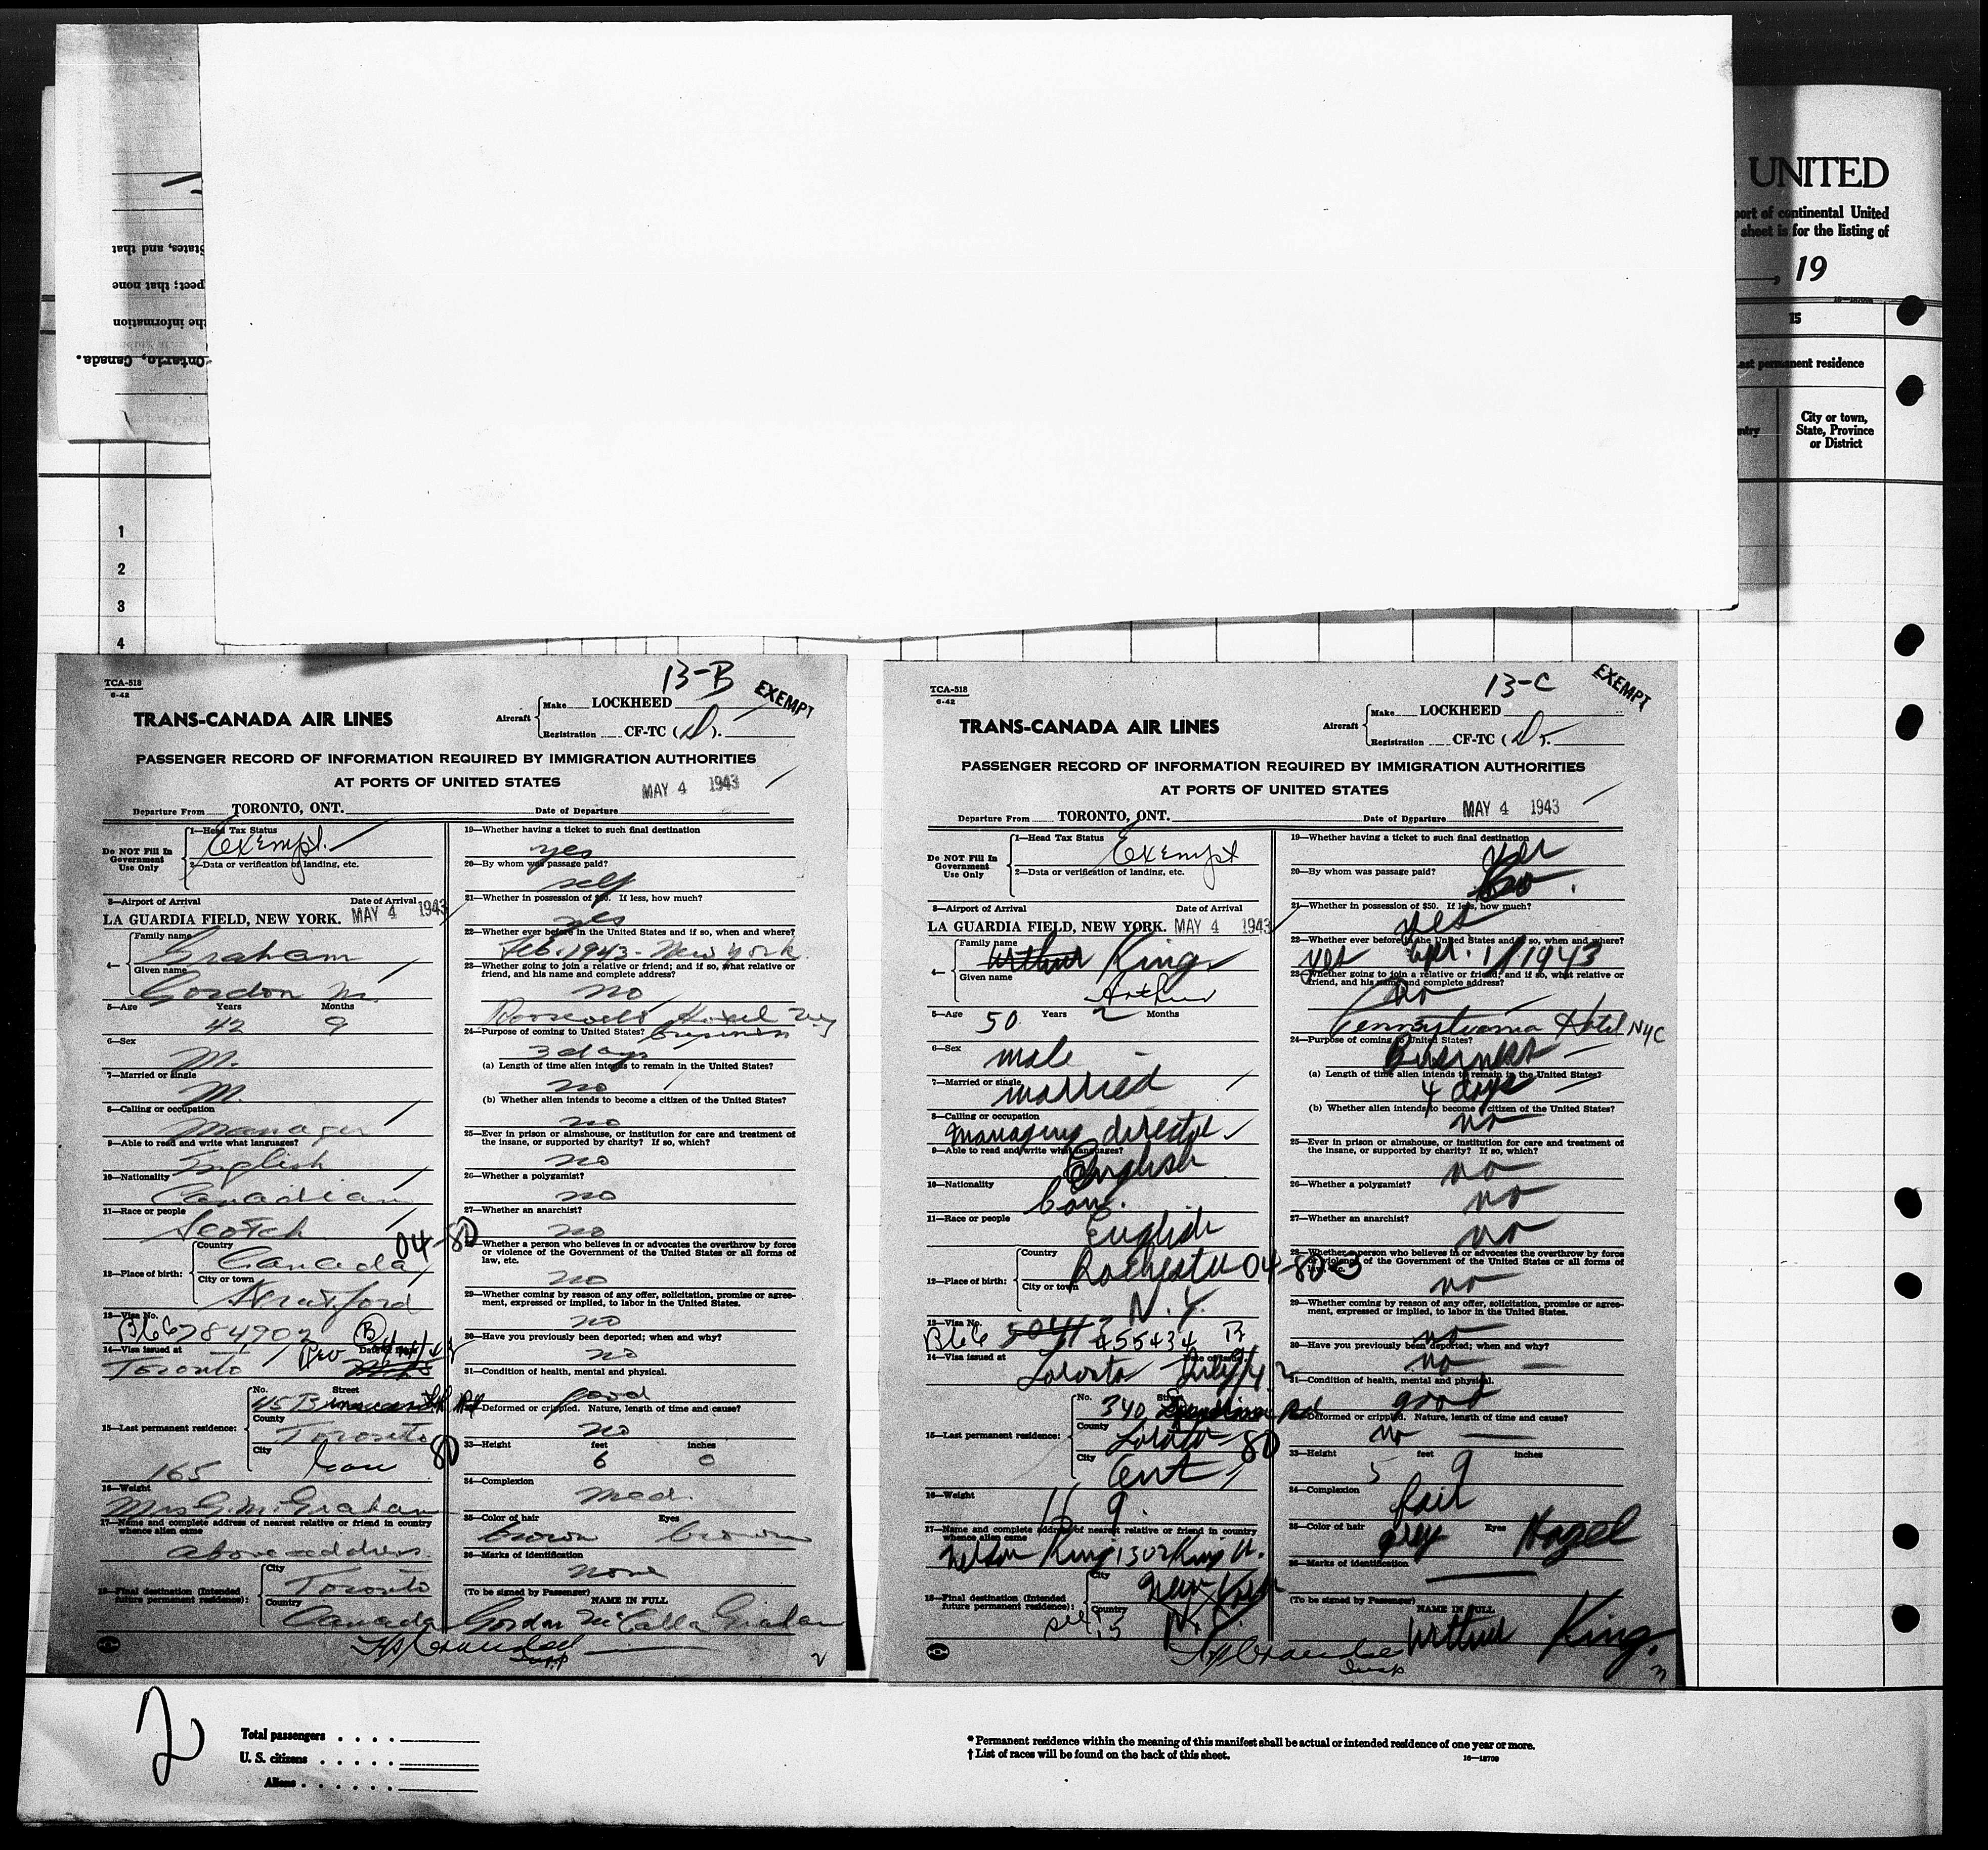 UNITED
port of continental United
sheet is for the listing of
, 19
15
Last permanent residence
City or town,
State, Province
or District
States, and that
pect; that none
the information
Ontario, Canada.
1
2
3
4
TCA-518
6-42
13-B
EXEMPT
TRANS-CANADA AIR LINES
Aircraft
Make LOCKHEED
Registration CF-TC (D).
PASSENGER RECORD OF INFORMATION REQUIRED BY IMMIGRATION AUTHORITIES
AT PORTS OF UNITED STATES
MAY 4 1943
Departure From TORONTO, ONT.
Date of Departure
Do NOT Fill In
Government
Use Only
1—Head Tax Status
Exempt.
2—Data or verification of landing, etc.
3—Airport of Arrival
Date of Arrival
LA GUARDIA FIELD, NEW YORK. MAY 4 1943
4—
Family name
Graham
Given name
Gordon M.
5—Age Years Months
42 9
6—Sex
M.
7—Married or single
M.
8—Calling or occupation
Manager
9—Able to read and write what languages?
English
10—Nationality
Canadian
11—Race or people
Scotch
04-80
12—Place of birth:
Country
Canada
City or town
Stratford
13—Visa No.
B66784902 B
14—Visa issued at
Rev
Toronto
15—Last permanent residence:
No. Street
45
County
Toronto
City
Can 80
165
16—Weight
Mrs G. M. Graham
17—Name and complete address of nearest relative or friend in country
whence alien came
above address.
18—Final destination (Intended
future permanent residence):
City
Toronto
Country
Canada
19—Whether having a ticket to such final destination
yes
20—By whom was passage paid?
self
21—Whether in possession of $50. If less, how much?
yes
22—Whether ever before in the United States and if so, when and where?
Feb. 1943 - New York.
23—Whether going to join a relative or friend; and if so, what relative or
friend, and his name and complete address?
no
Roosevelt Hotel NY
24—Purpose of coming to United States? business
3 days
(a) Length of time alien intends to remain in the United States?
no
(b) Whether alien intends to become a citizen of the United States?
no
25—Ever in prison or almshouse, or institution for care and treatment of
the insane, or supported by charity? If so, which?
no
26—Whether a polygamist?
no
27—Whether an anarchist?
no
28—Whether a person who believes in or advocates the overthrow by force
or violence of the Government of the United States or all forms of
law, etc.
no
29—Whether coming by reason of any offer, solicitation, promise or agree-
ment, expressed or implied, to labor in the United States.
no
30—Have you previously been deported; when and why?
no
31—Condition of health, mental and physical.
good
32—Deformed or crippled. Nature, length of time and cause?
no
33—Height feet inches
6 0
34—Complexion
med.
35—Color of hair Eyes
brown brown
36—Marks of identification
none
(To be signed by Passenger)
NAME IN FULL
Gordon McCalla Graham
Insp
2
TCA-518
6-42
13-C
EXEMPT
TRANS-CANADA AIR LINES
Aircraft
Make LOCKHEED
Registration CF-TC (D).
PASSENGER RECORD OF INFORMATION REQUIRED BY IMMIGRATION AUTHORITIES
AT PORTS OF UNITED STATES
MAY 4 1943
Departure From TORONTO, ONT.
Date of Departure
Do NOT Fill In
Government
Use Only
1—Head Tax Status
Exempt
2—Data or verification of landing, etc.
3—Airport of Arrival
Date of Arrival
LA GUARDIA FIELD, NEW YORK. MAY 4 1943
4—
Family name
Arthur King
Given name
Arthur
5—Age Years Months
50 2
6—Sex
male
7—Married or single
married
8—Calling or occupation
Managing director
9—Able to read and write what languages?
English
10—Nationality
Can.
11—Race or people
English
12—Place of birth:
Country
Rochester 04-80-3
City or town
N.Y.
13—Visa No.
B66 455434 B
14—Visa issued at
Toronto
15—Last permanent residence:
No. Street
340 Rd
County
Toronto 80
City
Ont
16—Weight
119
17—Name and complete address of nearest relative or friend in country
whence alien came
Nelson King 1302 King W.
18—Final destination (Intended
future permanent residence):
City
New York
Country
N.Y.
see 15
19—Whether having a ticket to such final destination
yes
20—By whom was passage paid?
Co.
21—Whether in possession of $50. If less, how much?
yes
22—Whether ever before in the United States and if so, when and where?
yes Apr. 1/1943
23—Whether going to join a relative or friend; and if so, what relative or
friend, and his name and complete address?
no
Pennsylvania Hotel NYC
24—Purpose of coming to United States?
Business
(a) Length of time alien intends to remain in the United States?
4 days
(b) Whether alien intends to become a citizen of the United States?
no
25—Ever in prison or almshouse, or institution for care and treatment of
the insane, or supported by charity? If so, which?
no
26—Whether a polygamist?
no
27—Whether an anarchist?
no
28—Whether a person who believes in or advocates the overthrow by force
or violence of the Government of the United States or all forms of
law, etc.
no
29—Whether coming by reason of any offer, solicitation, promise or agree-
ment, expressed or implied, to labor in the United States.
no
30—Have you previously been deported; when and why?
no
31—Condition of health, mental and physical.
good
32—Deformed or crippled. Nature, length of time and cause?
no
33—Height feet inches
5 9
34—Complexion
fair
35—Color of hair Eyes
grey Hazel
36—Marks of identification
(To be signed by Passenger)
NAME IN FULL
Arthur King.
Insp
3
2
Total passengers
U. S. citizens
Aliens
* Permanent residence within the meaning of this manifest shall be actual or intended residence of one year or more.
† List of races will be found on the back of this sheet.
16—18709